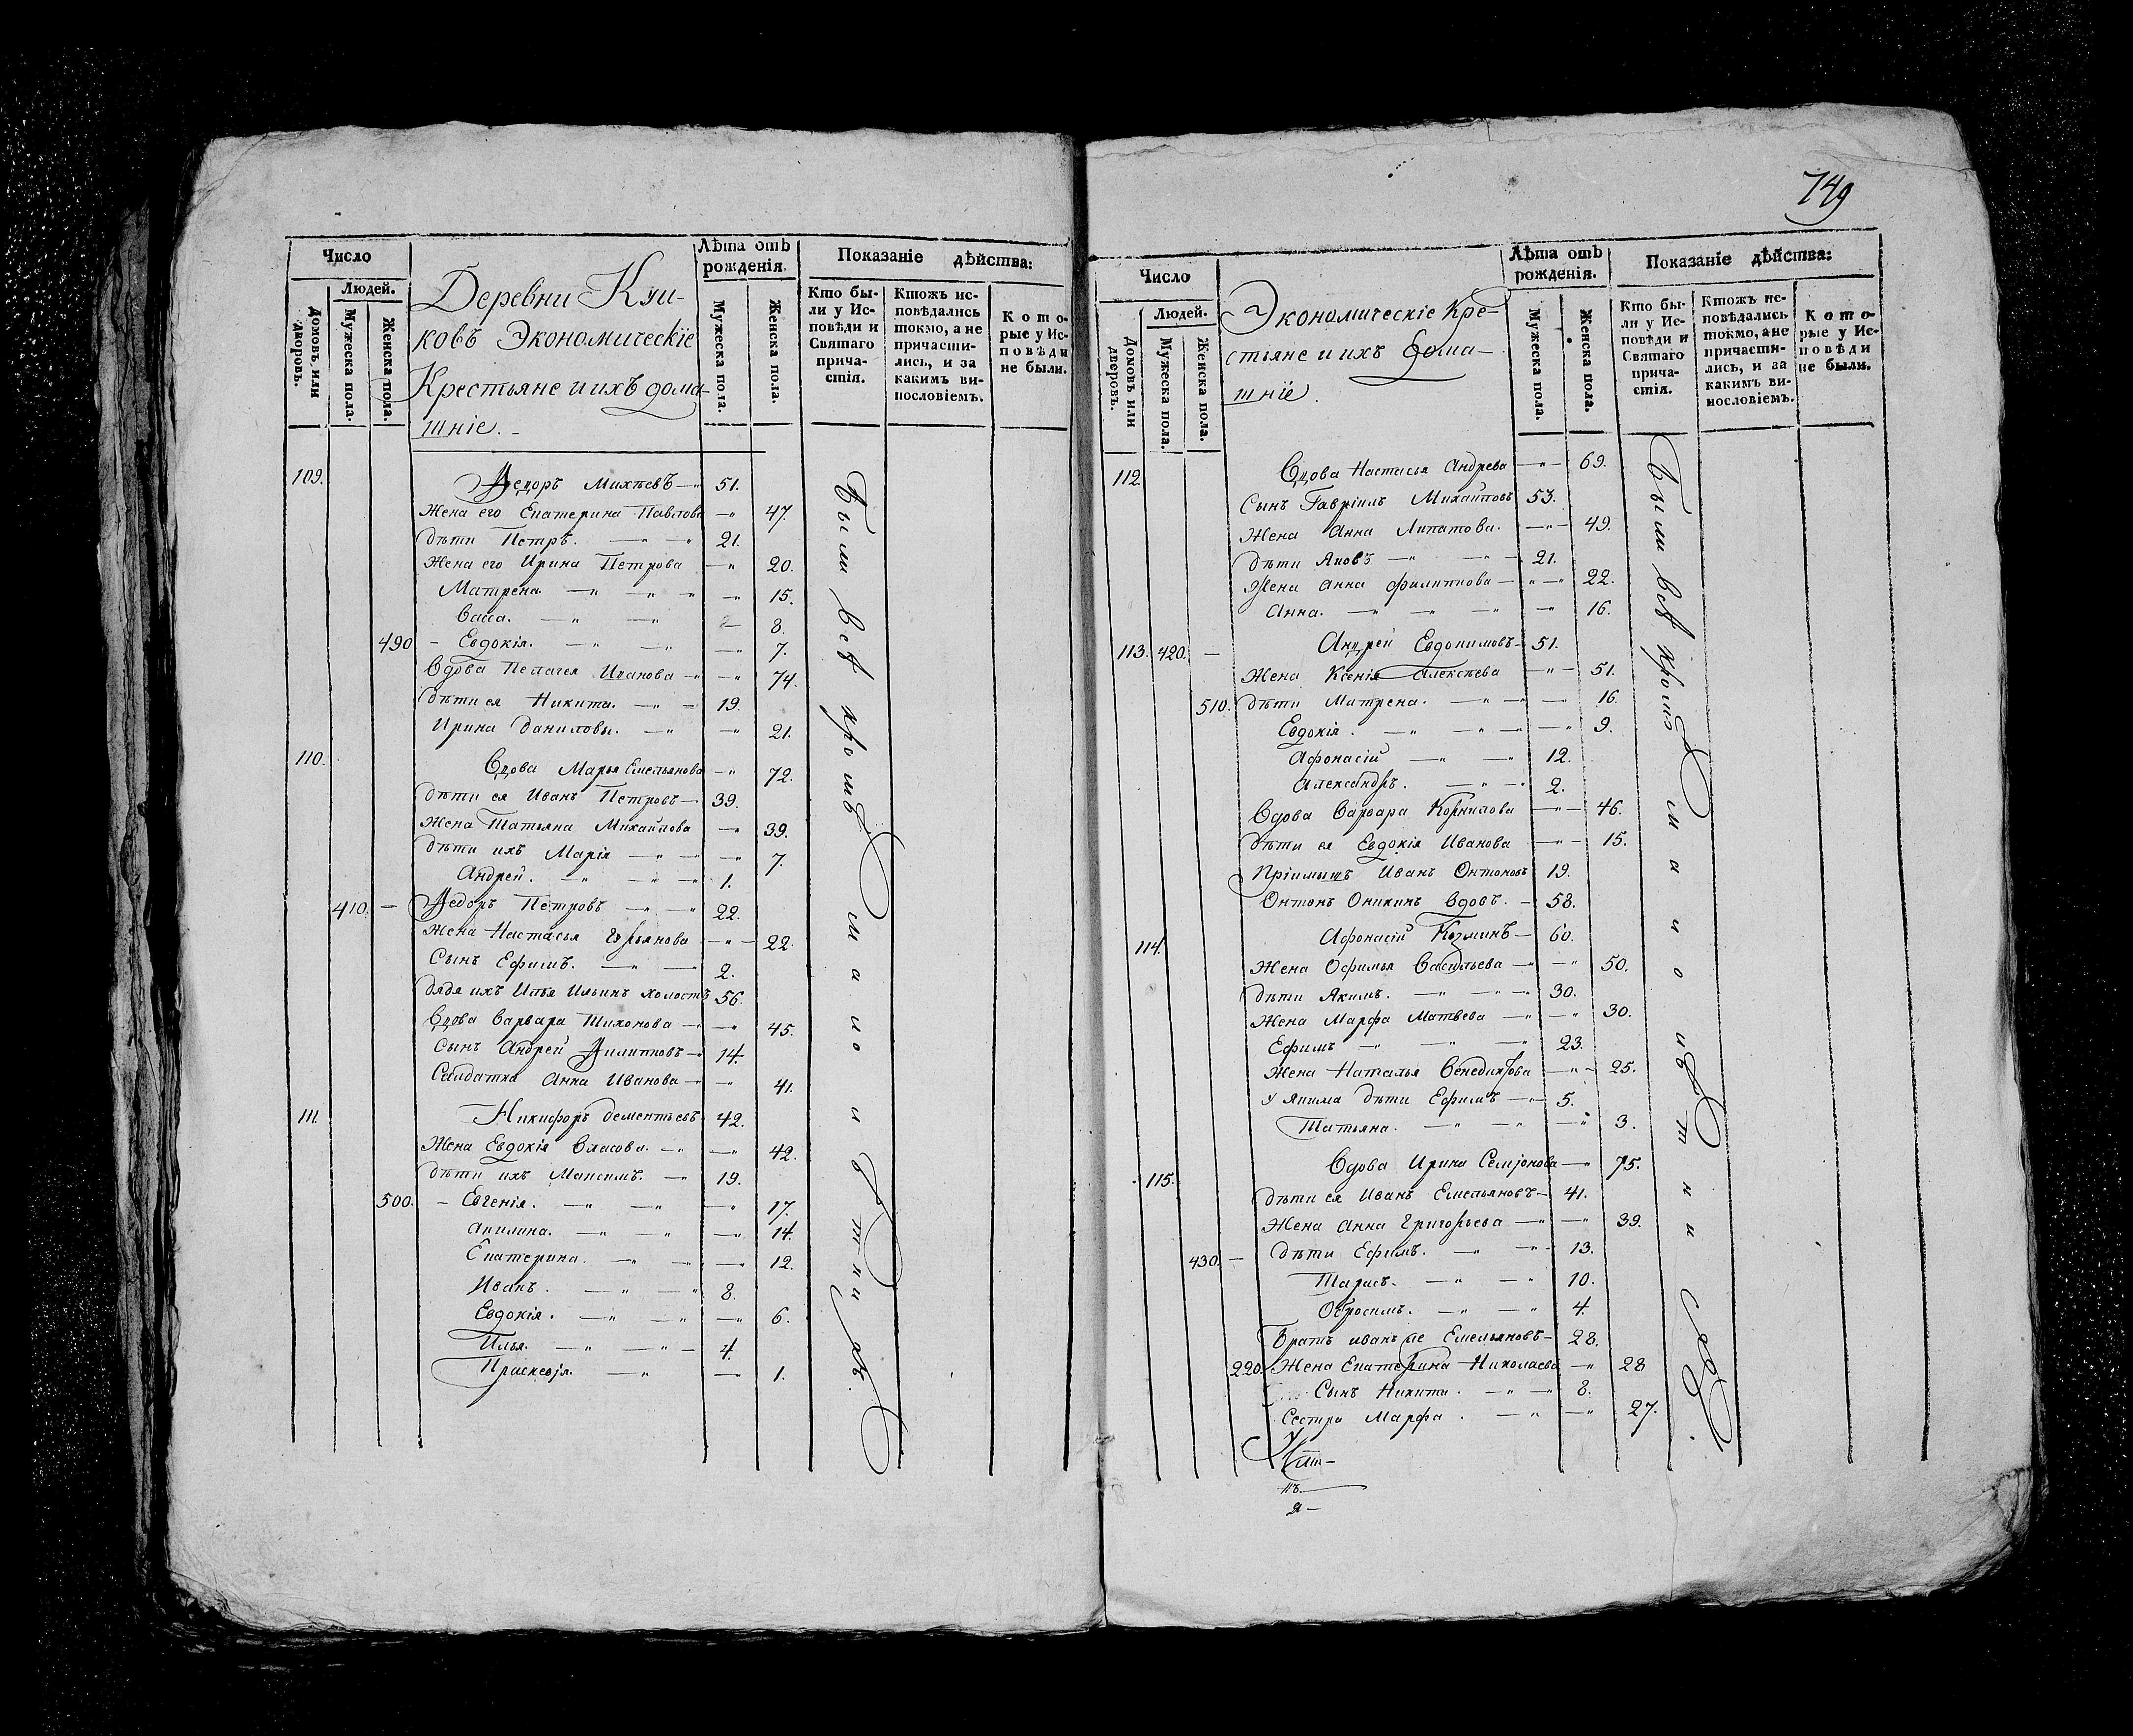 Число
Людей.
Домовъ, или дворовъ.
Мужеска пола.
Женска пола.
Деревни Кли-
ковъ Экономическіе
Крестьяне и ихъ дома-
шніе.
Лѣта отъ рожденія.
Мужеска пола.
Женска пола.
Показаніе дѣйства:
Кто бы-
ли у Ис-
повѣди и
Святаго
прича-
стія.
Ктожъ ис-
повѣдались
токмо, а не
причасти-
лись, и за
какимъ ви-
нословіемъ.
Кото-
рые у Ис-
повѣди
не были.
109. Ѳедоръ Михѣевъ 51.
Жена его Екатерина Павлова 47.
дѣти Петръ. 21.
Жена его Ирина Петрова 20.
Матрена 15.
Васа. 8.
490 Евдокія. 7.
Вдова Пелагея Иванова 74.
дѣти ея Никита. 19.
Ирина Данилова. 21.
110. Вдова Марья Емельянова 72.
дѣти ея Иванъ Петровъ 39.
Жена Татьяна Михайлова 39.
дѣти ихъ Марія 7.
Андрей. 1.
410. Ѳедоръ Петровъ 22.
Жена Настасья Гурьянова 22.
Сынъ Ефимъ. 2.
дядя ихъ Илья Ильинъ холостъ 56.
Вдова Варвара Тихонова 45.
Сынъ Андрей Филипповъ 14.
Салдатка Анна Иванова 41.
111. Никифоръ Дементьевъ 42.
Жена Евдокія Власова. 42.
дѣти ихъ Максимъ. 19.
500. Евгенія. 17.
Акилина. 14.
Екатерина. 12.
Иванъ. 8.
Евдокія. 6.
Илья. 4.
Праскевія. 1.
Были всѣ кромѣ малолѣтнихъ.
749
Число
Людей.
Домовъ или дворовъ.
Мужеска пола.
Женска пола.
Экономическіе Кре-
стьяне и ихъ дома-
шніе
Лѣта отъ рожденія.
Мужеска пола.
Женска пола.
Показаніе дѣйства:
Кто бы-
ли у Ис-
повѣди и
Святаго
прича-
стія.
Ктожъ ис-
повѣдались
токмо, а не
причасти-
лись, и за
какимъ ви-
нословіемъ.
Кото-
рые у Ис-
повѣди
не были.
112 Вдова Настасья Андрева 69.
Сынъ Гавріилъ Михайловъ 53.
Жена Анна Липатова. 49.
дѣти Яковъ 21.
Жена Анна Филиппова 22.
Анна. 16.
113. 420. Андрей Евдокимовъ 51.
Жена Ксенія Алексѣева 51.
510. дѣти Матрена. 16.
Евдокія. 9.
Афонасій 12.
Александръ. 2.
Вдова Варвара Корнилова 46.
дѣти ея Евдокія Иванова 15.
Пріимышъ Иванъ Онтоновъ 19.
Онтонъ Оникинъ вдовъ. 58.
114. Афонасій Козминъ 60.
Жена Офимья Васильева 50.
дѣти Якимъ. 30.
Жена Марфа Матвева 30.
Ефимъ 23.
Жена Наталья Венедихтова 25.
у Якима дѣти Ефимъ 5.
Татьяна. 3.
115. Вдова Ирина Семіонова 75.
дѣти ея Иванъ Емельяновъ 41.
Жена Анна Григорьева 39.
430. дѣти Ефимъ. 13.
Тарасъ. 10.
Обросимъ. 4.
Братъ иванъ же Емельяновъ 28.
220. Жена Екатерина Николаева 28
Сынъ Никита. 8.
Сестра Марфа. 27.
Были всѣ кромѣ малолѣтнихъ.